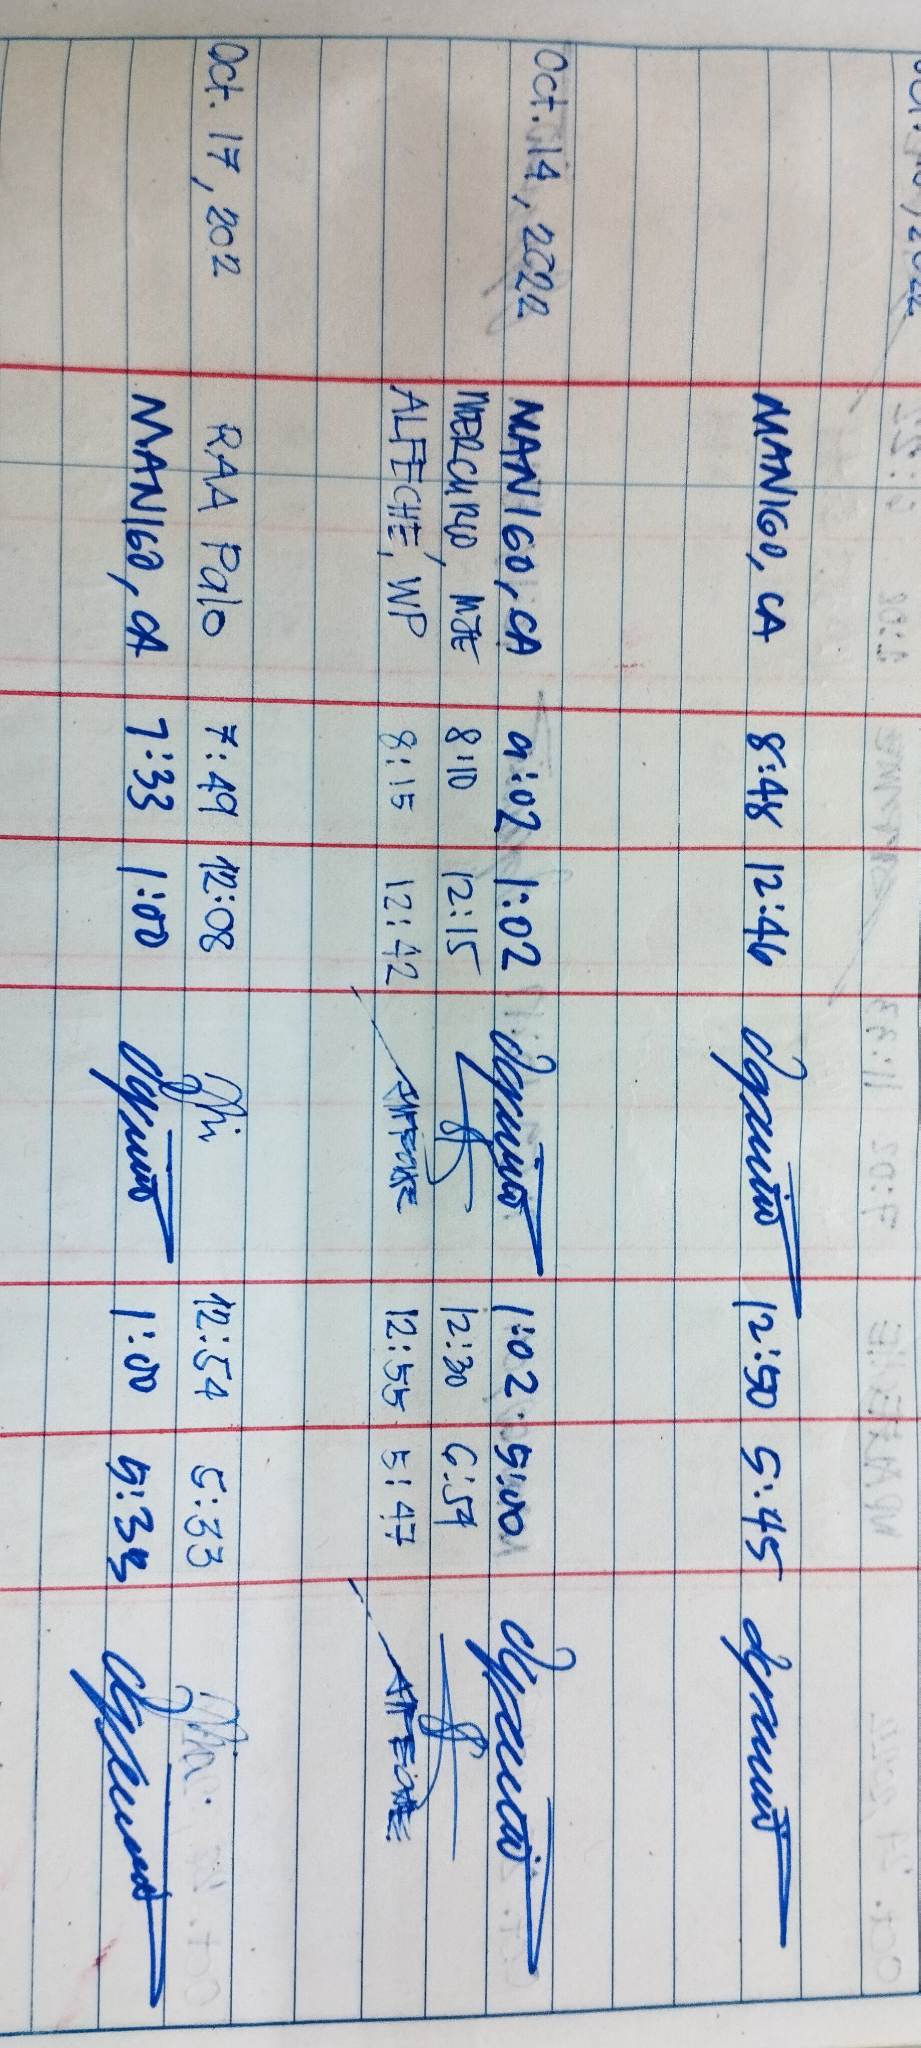 MANIGO, CA 8:48 12:46 12:50 5:45
Oct. 14, 2022 MANIGO, CA 9:02 1:02 1:02 5:00
MERCURIO, MJE 8:10 12:15 12:30 6:54
ALFECHE, WP 8:15 12:42 ALFECHE 12:55 5:47 ALFECHE
Oct. 17, 202 RAA Palo 7:49 12:08 12:54 5:33
MANIGO, CA 7:33 1:00 1:00 5:33